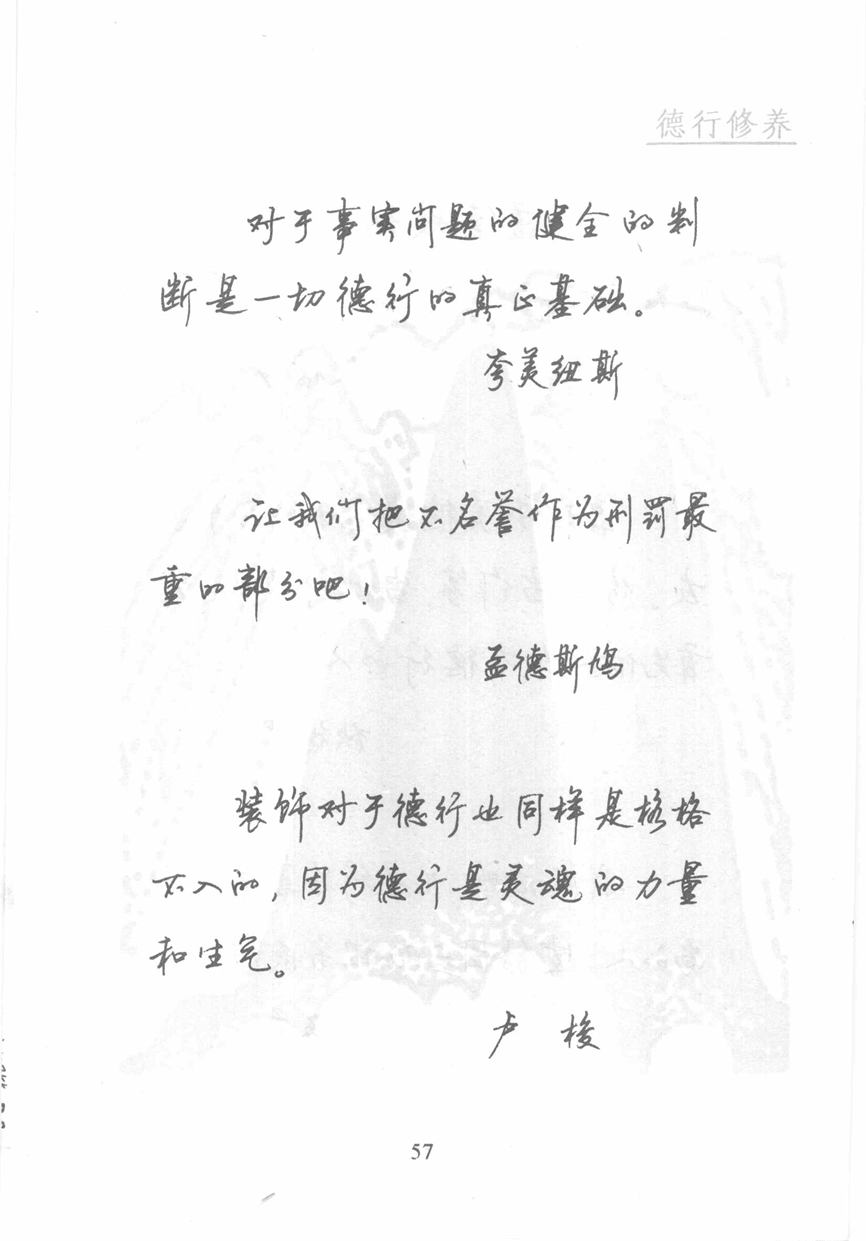 德行修养
对于事实问题的健全的判
断是一切德行的真正基础。
夸美纽斯
让我们把不名誉作为刑罚最
重的部分吧!
孟德斯鸠
装饰对于德行也同样是格格
不入的,因为德行是灵魂的力量
和生气。
卢 梭
57